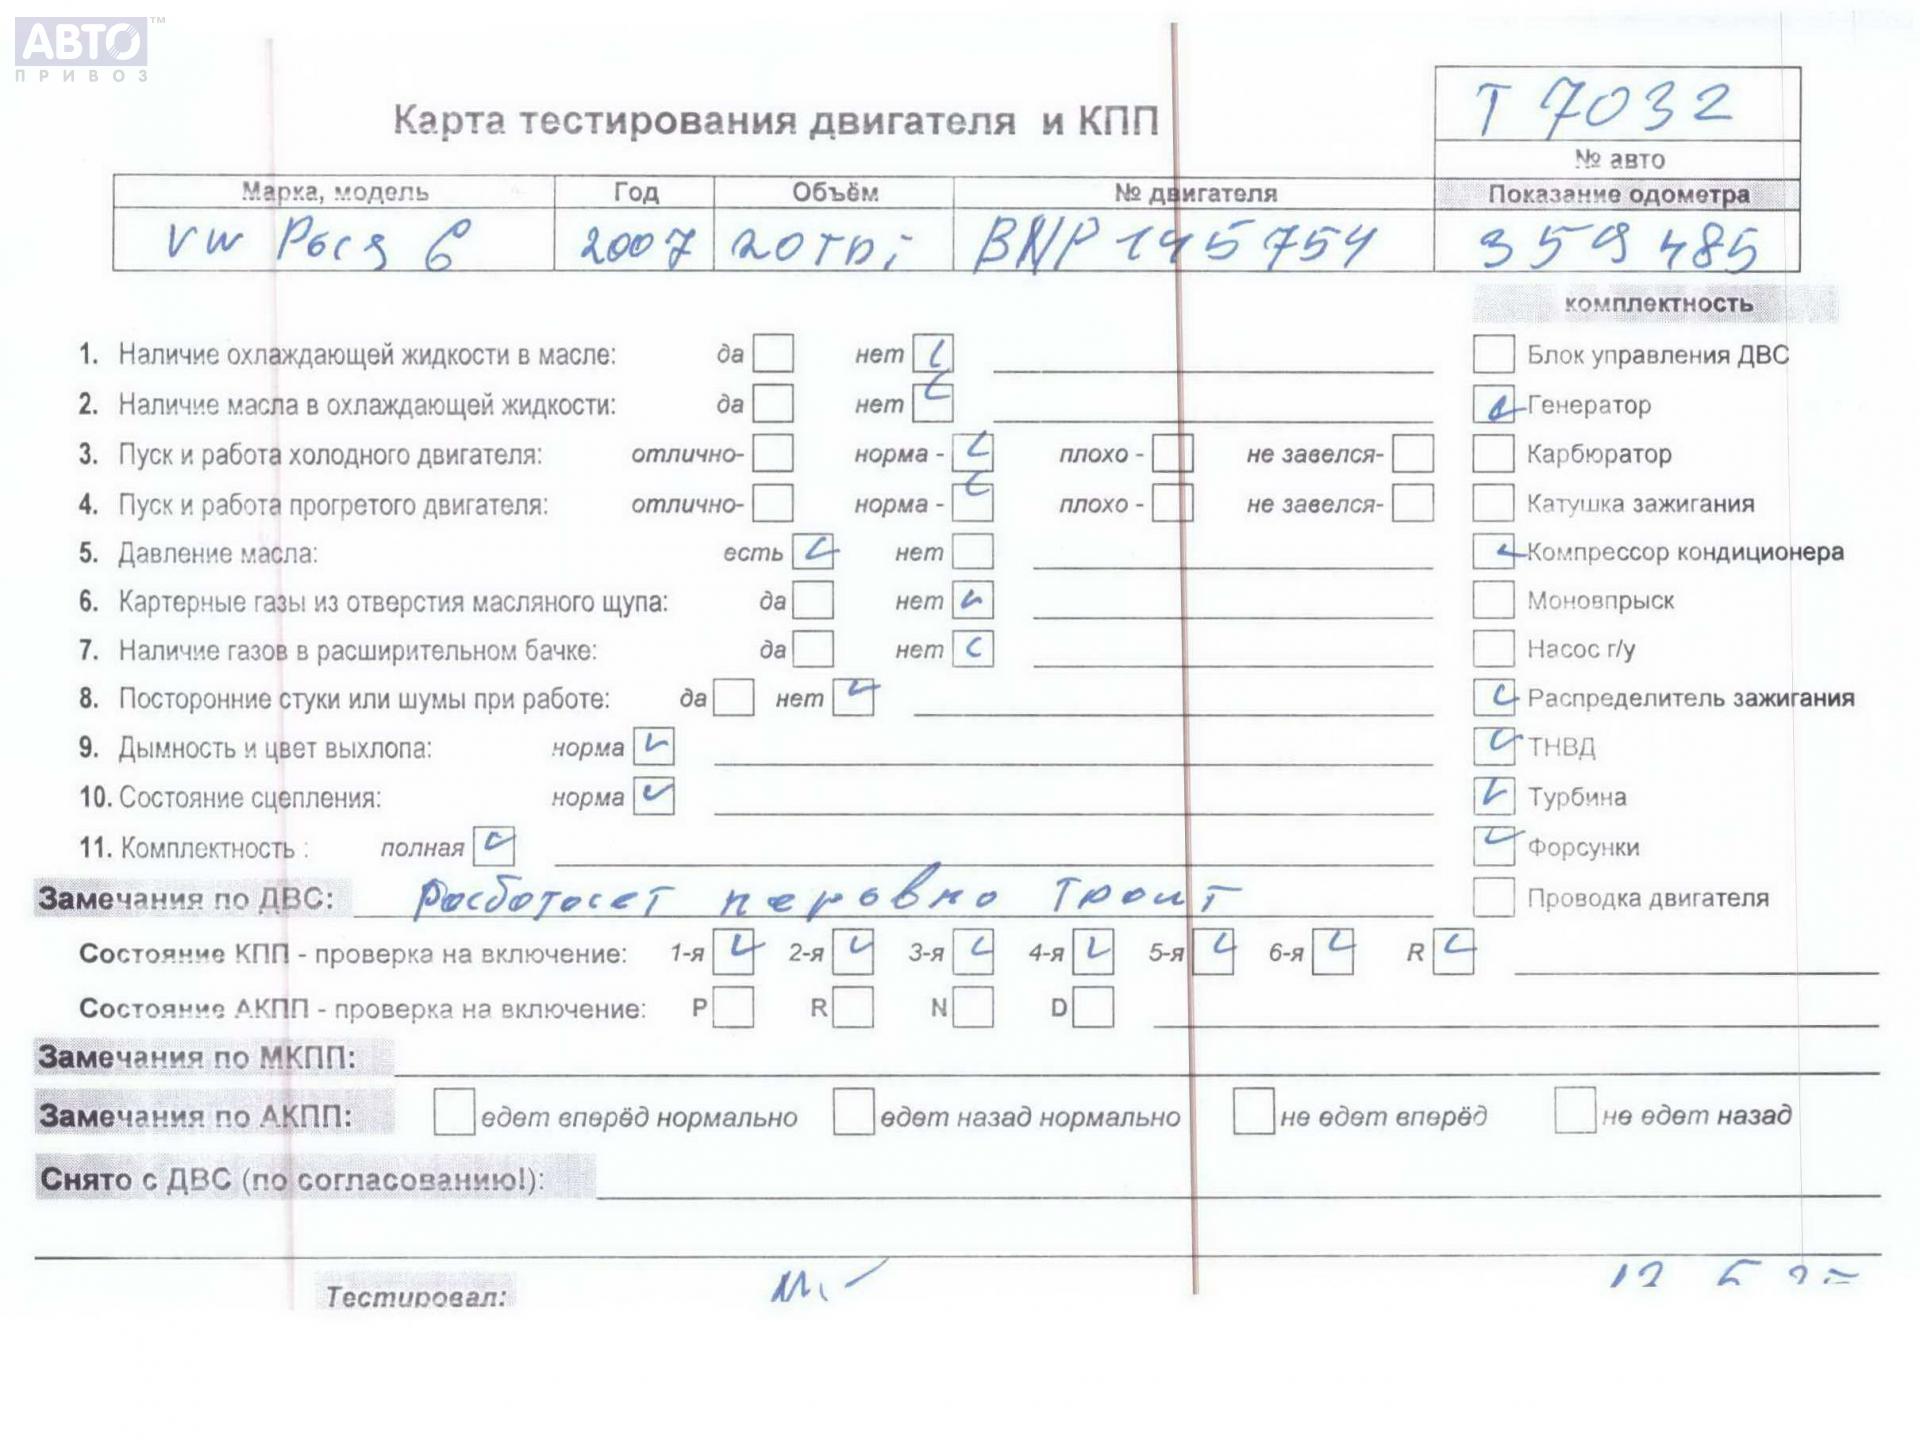 АВТО™
ПРИВОЗ
Карта тестирования двигателя и КПП
T 7032
№ авто
Марка, модель Год Объём № двигателя Показание одометра
VW 2007 2.0 TDi BMP 145754 359 485
комплектность
1. Наличие охлаждающей жидкости в масле: да нет Блок управления ДВС
2. Наличие масла в охлаждающей жидкости: да нет Генератор
3. Пуск и работа холодного двигателя: отлично- норма - плохо - не завелся- Карбюратор
4. Пуск и работа прогретого двигателя: отлично- норма - плохо - не завелся- Катушка зажигания
5. Давление масла: есть нет Компрессор кондиционера
6. Картерные газы из отверстия масляного щупа: да нет Моновпрыск
7. Наличие газов в расширительном бачке: да нет Насос г/у
8. Посторонние стуки или шумы при работе: да нет Распределитель зажигания
9. Дымность и цвет выхлопа: норма ТНВД
10. Состояние сцепления: норма Турбина
11. Комплектность : полная Форсунки
Замечания по ДВС: Работает неровно троит Проводка двигателя
Состояние КПП - проверка на включение: 1-я 2-я 3-я 4-я 5-я 6-я R
Состояние АКПП - проверка на включение: P R N D
Замечания по МКПП:
Замечания по АКПП: едет вперёд нормально едет назад нормально не едет вперёд не едет назад
Снято с ДВС (по согласованию!):
Тестировал: